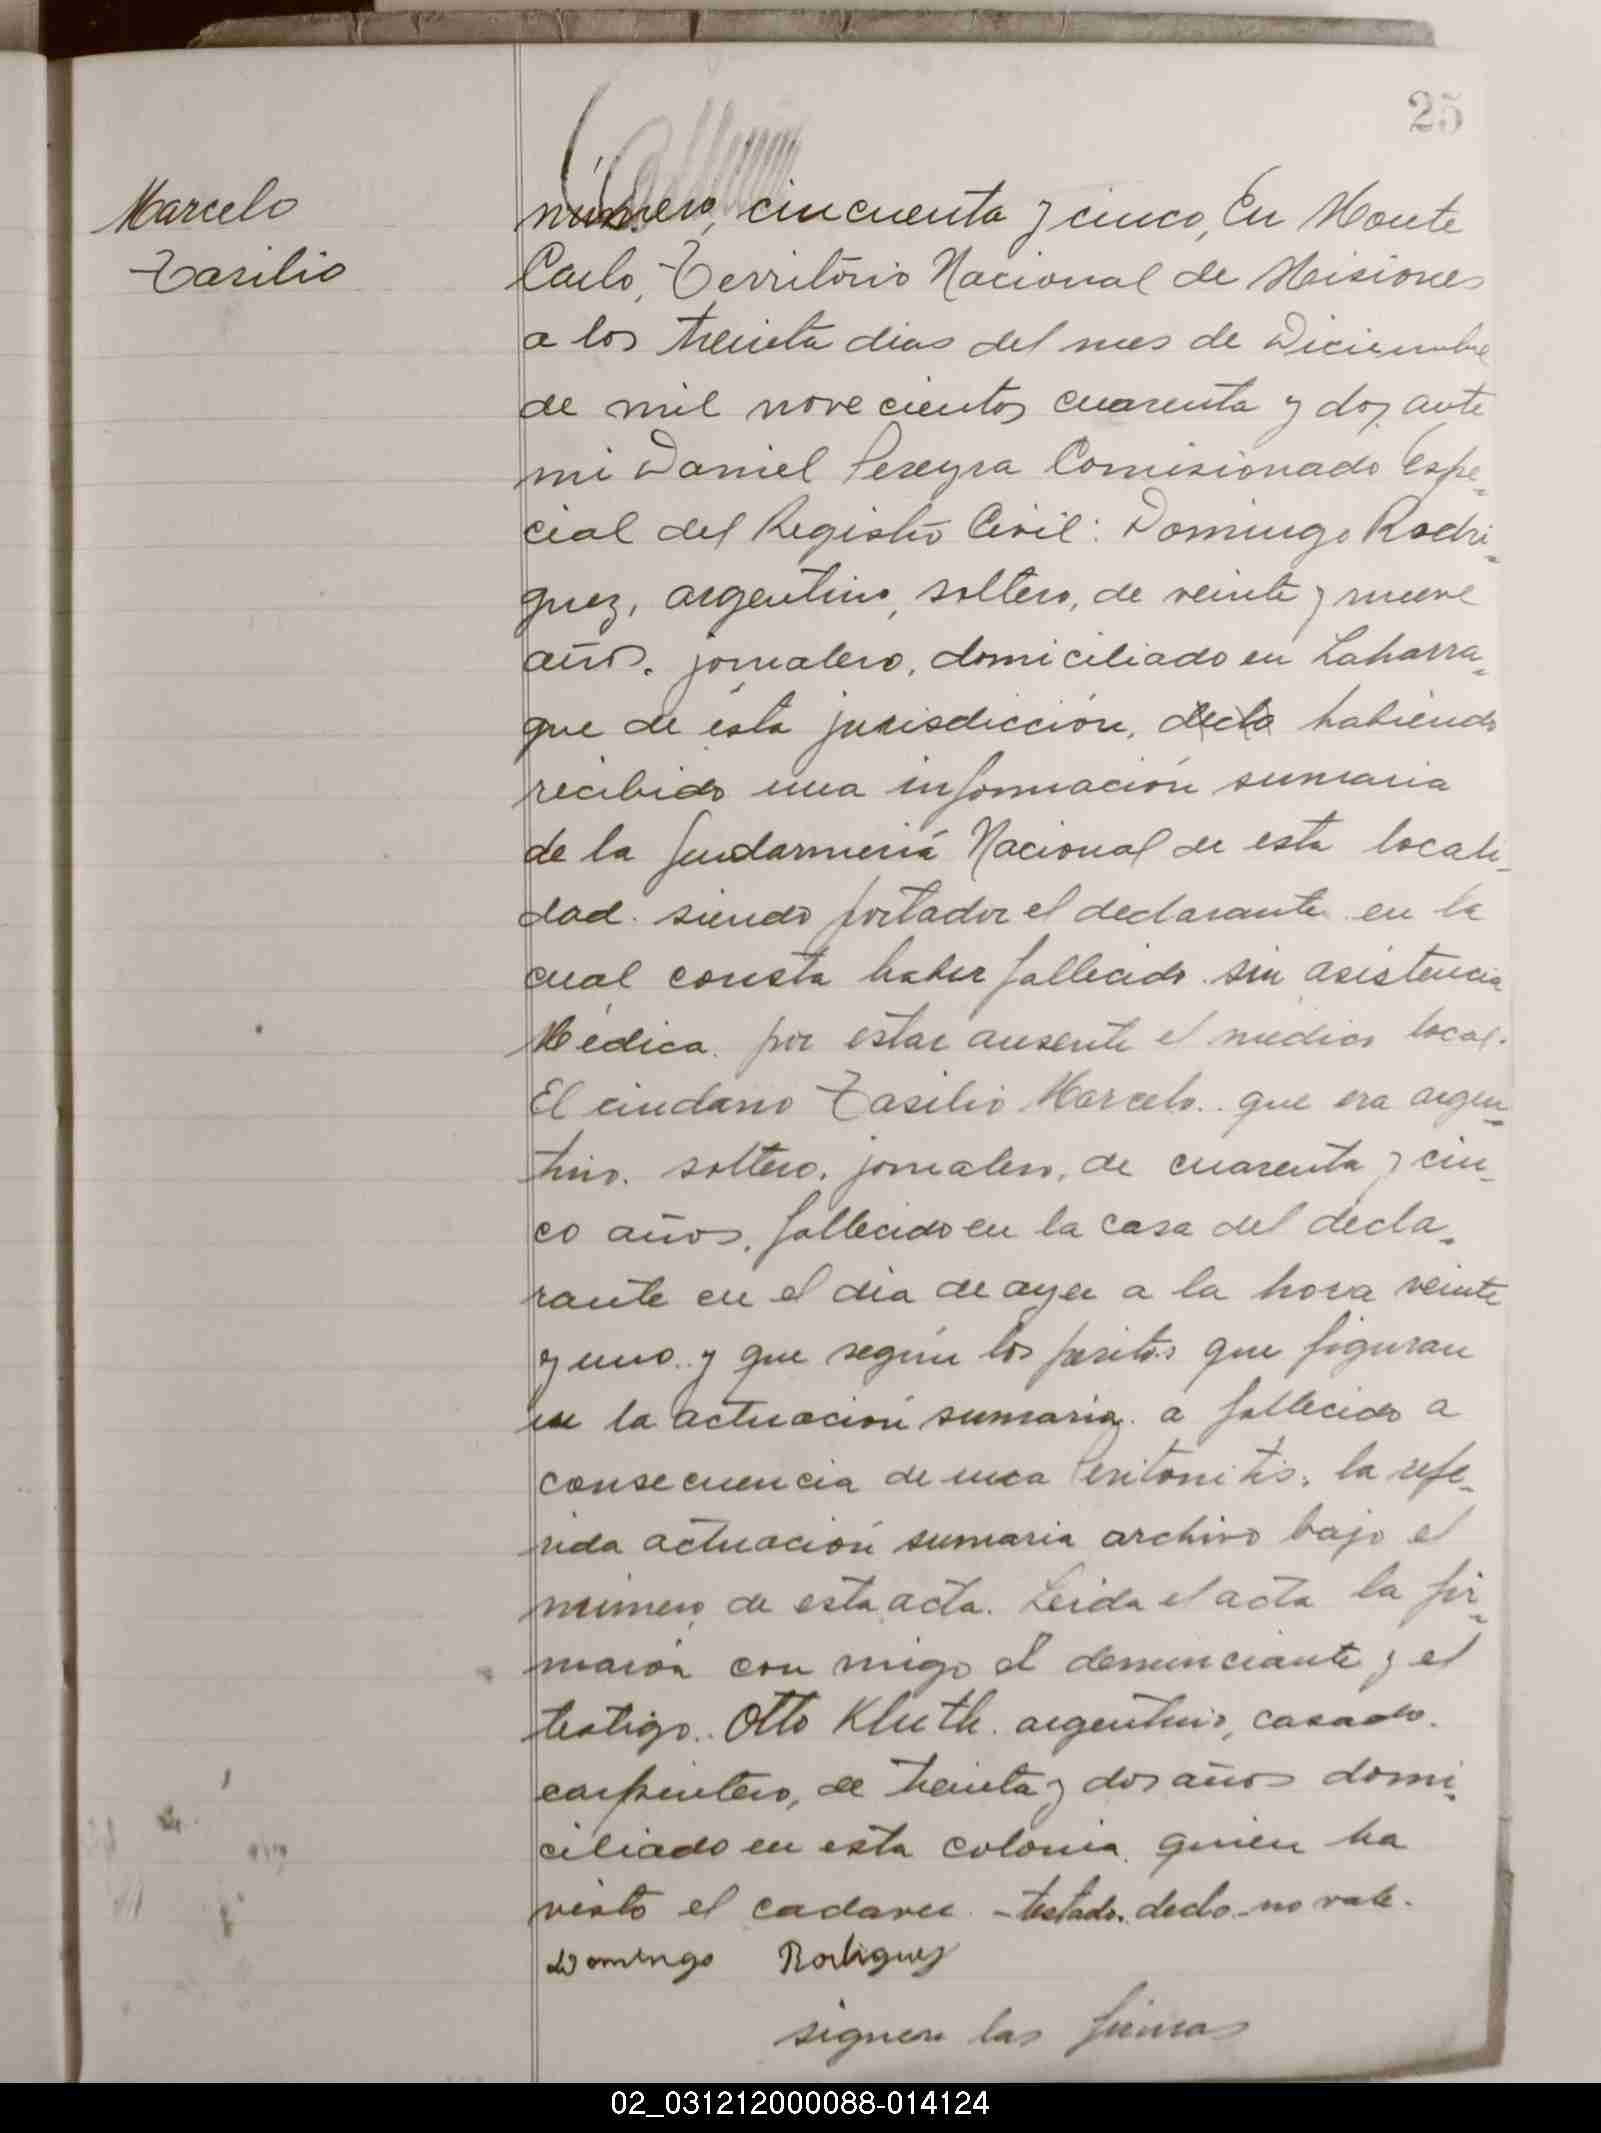 25
Marcelo
Tasilio
número, cincuenta y cinco, En Monte
Carlo, Territorio Nacional de Misiones
a los treinta dias del mes de Diciembre
de mil novecientos cuarenta y dos, ante
mi Daniel Pereyra Comisionado Espe-
cial del Registro Civil: Domingo Rodri-
guez, argentino, soltero, de veinte y nueve
años, jornalero, domiciliado en Laharra-
gue de ésta jurisdicción, declo habiendo
recibido una información sumaria
de la Jendarmeriá Nacional de esta locali-
dad. siendo portador el declarante en la
cual consta haber fallecido sin asistencia
Médica. por estar ausente el medico local.
El ciudano Tasilio Marcelo.. que era argen-
tino. soltero. jornalero, de cuarenta y cin-
co años, fallecido en la casa del decla-
rante en el dia de ayer a la hora veinte
y uno.. y que según los peritos que figuran
en la actuación sumaria. a fallecido a
consecuencia de una Peritonitis. la refe-
rida actuación sumaria archivo bajo el
número de esta acta. Leida el acta la fir-
marón con migo el denunciante y el
testigo.. Otto Kluth. argentino, casado.
carpintero, de treinta y dos años domi-
ciliado en esta colonia. quien ha
visto el cadaver. - testado. declo no vale.
Domingo Rodriguez
siguen las firmas
02_031212000088-014124